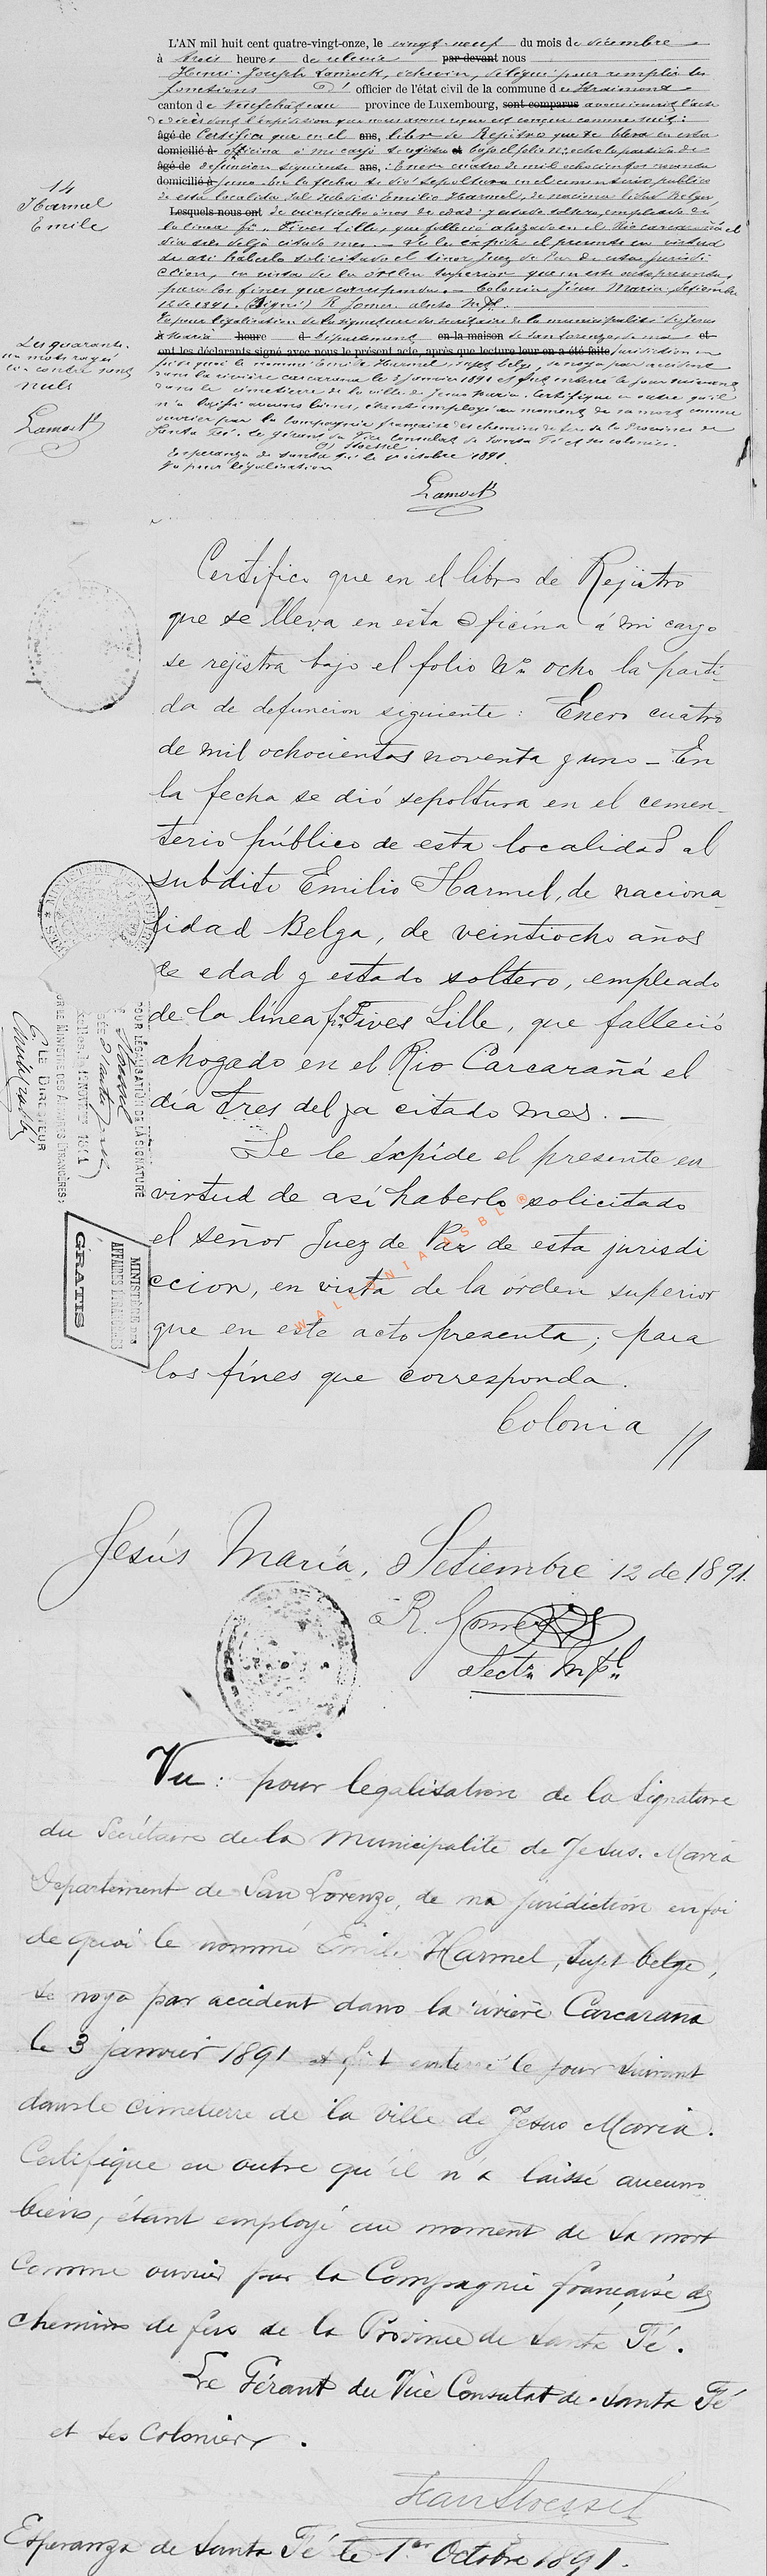 L'AN mil huit cent quatre-vingt-onze, le vingt-neuf du mois de décembre
à trois heures de relevée par devant nous
Henri Joseph Lamock, échevin, délégué pour remplir les
fonctions d' officier de l'état civil de la commune de Straimont
canton de Neufchâteau province de Luxembourg, sont comparus avons inscrit l'acte
de décès dont l'expédition que nous avons reçue est conçue comme suit :
âgé de Certifico que en el ans, libro de Rejistro que se lleva en esta
domicilié à oficina á mi cargo se rejistra et bajo el folio No ocho la partida de
âgé de defuncion siguiente ans, : Enero cuatro de mil ochocientos noventa
domicilié à y uno En la fecha se dió sepoltura en el cementerio público
14
Harmel
Emile
de esta localidad al subdito Emilio Harmel, de nacionalidad Belga,
Lesquels nous ont de veintiocho años de edad y estado soltero, empleado de
la linea fr. Fives Lille, que falleció ahogado en el Rio Carcarañá el
dia tres del ya citado mes. — Se le expide el presente en virtud
de asi haberlo solicitado el señor Juez de Paz de esta jurisdi
ccion, en vista de la orden superior que en este acto presenta,
para los fines que corresponda. — Colonia Jésus Maria Setiembre
12 de 1891. (Signé) R Gomez
Vu pour légalisation de la signature du secrétaire de la municipalité de Jesus
à Maria heure d Département en la maison de San Lorenzo de ma et
ont les déclarants signé avec nous le présent acte, après lecture leur en a été faite juridiction en
Les quarante-
un mots rayés
ci-contre sont
nuls
Lamock
foi de quoi le nommé Emile Harmel, sujet belge, se noya par accident
dans la rivière Carcarana le 3 janvier 1891 et fut enterré le jour suivant
dans le cimetière de la ville de Jesus Maria. Certifique en outre qu'il
n'a laissé aucuns biens, étant employé au moment de sa mort comme
ouvrier par la Compagnie française des chemins de fer de la Province de
Santa Fé. Le Gérant du Vice Consulat de Santa Fé et ses colonies.
(s) Stoessel
Esperanza de Santa Fé le 1r octobre 1891
Vu pour légalisation
Lamock
Certifico que en el libro de Rejistro
que se lleva en esta Oficina á mi cargo
se rejistra bajo el folio No ocho la parti-
da de defuncion siguiente : Enero cuatro
de mil ochocientos noventa y uno — En
la fecha se dió sepoltura en el cemen-
terio público de esta localidad al
subdito Emilio Harmel, de naciona
lidad Belga, de veintiocho años
de edad y estado soltero, empleado
de la línea fr. Fives Lille, que falleció
ahogado en el Rio Carcarañá el
día tres del ya citado mes. —
Se le éxpíde el presente en
virtud de así haberlo solicitado
el señor Juez de Paz de esta jurisdi
ccion, en vista de la órden superior
que en este acto presenta, para
los fínes que corresponda.
Colonia //
POUR LÉGALISATION DE LA SIGNATURE
LE MINISTRE DES AFFAIRES ÉTRANGÈRES:
LE DIRECTEUR
MINISTÈRE DES
AFFAIRES ÉTRANGÈRES
GRATIS
WALLONIA ASBL ®
Jesús María, Setiembre 12 de 1891.
R. Gomez
Sectro Mpl
Vu : pour legalisation de la signature
du Secrétaire de la Municipalité de Jesus. Maria
Departement de San Lorenzo, de ma juridiction en foi
de quoi le nommé Emile Harmel, sujet belge,
se noya par accident dans la rivière Carcarana
le 3 janvier 1891 et fut enterré le jour suivant
dans le cimetierre de la ville de Jesus Maria.
Certifique en outre qu'il n'a laissé aucuns
biens, étant employé au moment de sa mort
comme ouvrier par la Compagnie française des
chemins de fers de la Province de Santa Fé.
Le Gérant du Vice Consulat de Santa Fé
et ses colonies.
Jean Stoessel
Esperanza de Santa Fé le 1er Octobre 1891.